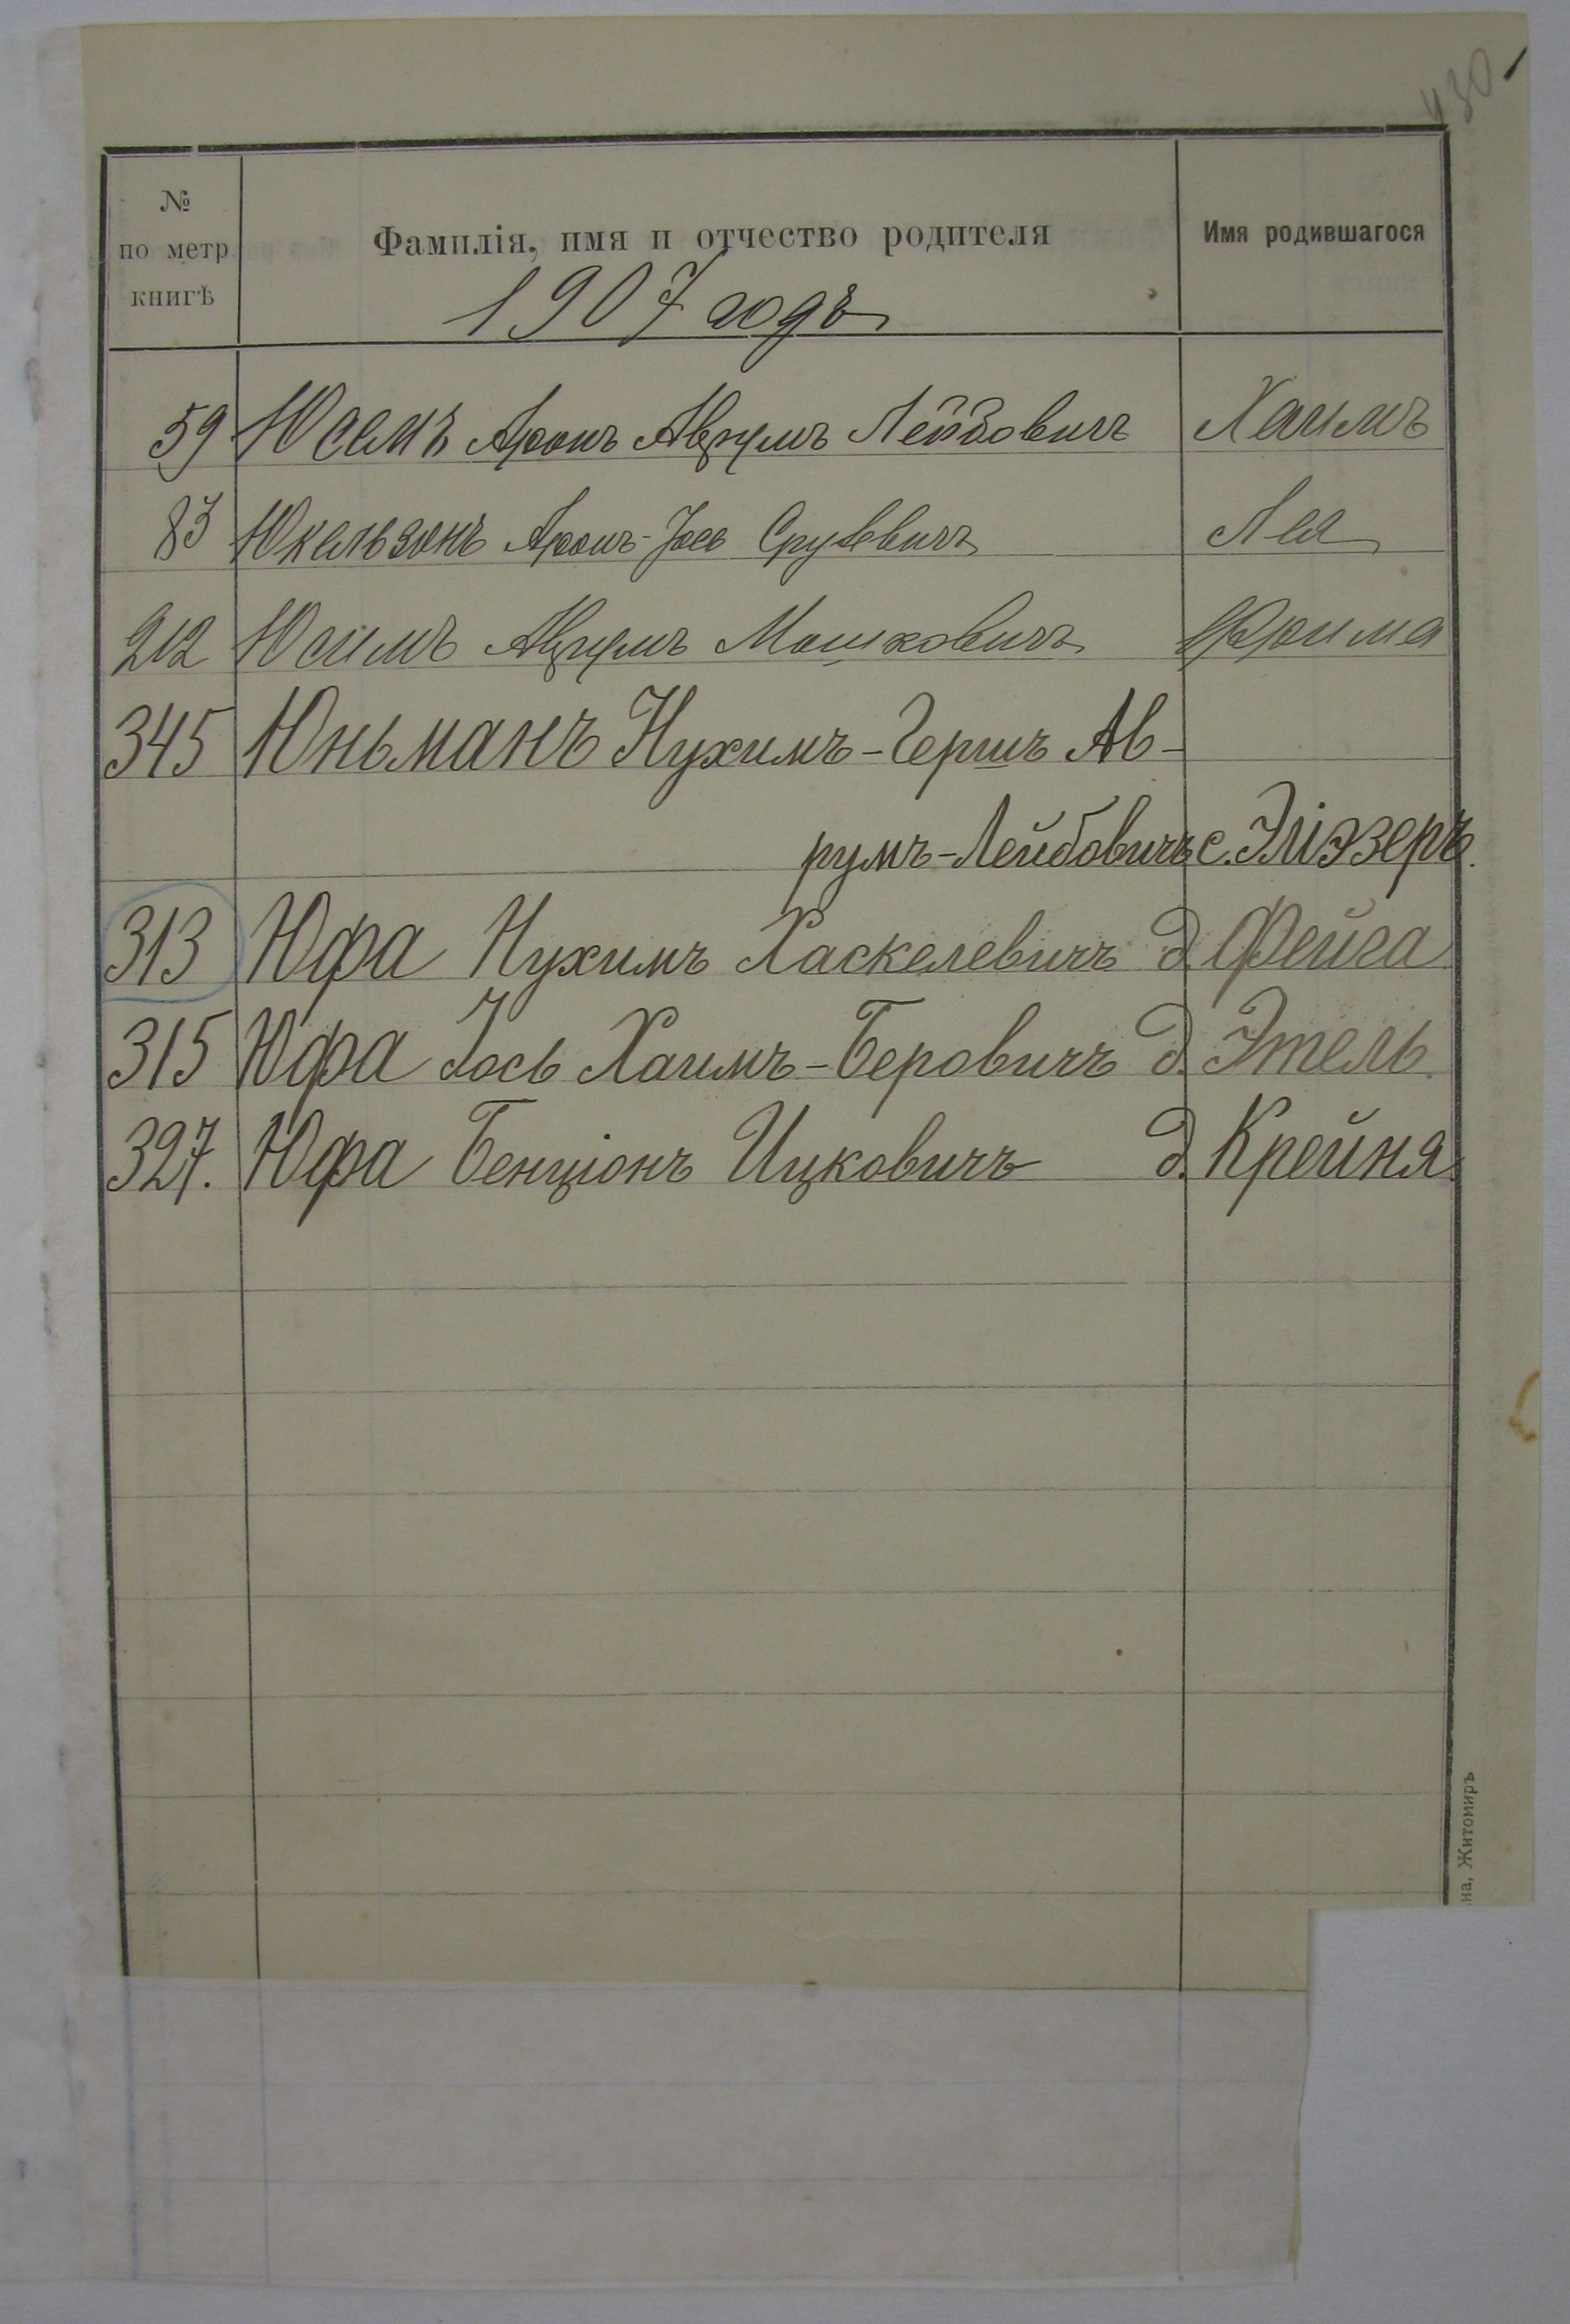 430
№
по метр
книгѣ
Фамилія, имя и отчество родителя
Имя родившагося
1907 годъ
59 Юсемъ Аронъ Аврумъ Лейбовичъ Хаимъ
83 Юкельзонъ Аронъ-Іось Срулевичъ Лея
212 Юсимъ Аврумъ Мошковичъ Фрима
345 Юньманъ Нухимъ-Гершъ Ав-
румъ-Лейбовичъ с. Эліэзеръ.
313 Юфа Нухимъ Хаскелевичъ д. Фейга
315 Юфа Іось Хаимъ-Беровичъ д. Этель.
327. Юфа Бенціонъ Ицковичъ д. Крейня.
на, Житомиръ